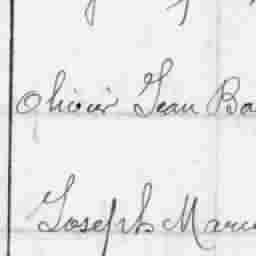 Olivier Jean Ba
Joseph Marc